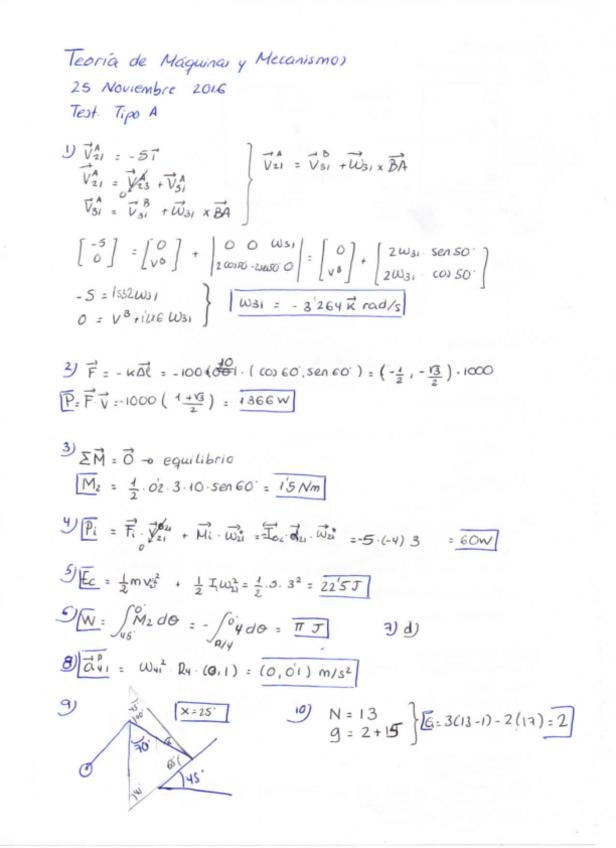 Teoría de Máquinas y Mecanismos
25 Noviembre 2016
Test. Tipo A
1) V₂₁ᴬ = -5i
V₂₁ᴬ = V₂₃ᴬ + V₃₁ᴬ
0
V₃₁ᴬ = V₃₁ᴮ + ω₃₁ × BA
} V₂₁ᴬ = V₃₁ᴮ + ω₃₁ × BA
[-5 0] = [0 vᴮ] + |0 0 ω₃₁ 2cos50 -2sen50 0| = [0 vᴮ] + [2ω₃₁· sen50· 2ω₃₁· cos50·]
-5 = 1'532ω₃₁
0 = Vᴮ + ω₃₁
} ω₃₁ = - 3'264 k rad/s
2) F = -kΔl = -100 · 10 · (cos60, sen60) = (-1/2, -√3/2) · 1000
P = F·V = -1000 ((1+√3)/2) = 1366W
3) ΣM = 0 → equilibrio
M₂ = 1/2 · 0'2 · 3 · 10 · sen60° = 1'5 Nm
4) Pi = Fi · + Mi · ω₂₁ = · α₂₁ · ω₂₁ = -5·(-4) 3 = 60W
0
5) Ec = 1/2 m v² + 1/2 I ω₂₁² = 1/2 · 5 · 3² = 22'5 J
6) W = ∫₄₅°⁰° M₂ dθ = - ∫ 4dθ = π J 7) d)
8) a₄₁ᴾ = ω₄₁² R₄ · (0,1) = (0, 0'1) m/s²
9) x = 25° 10) N = 13
g = 2 + 15 } G = 3(13-1) - 2(17) = 2
70°
65°
45°